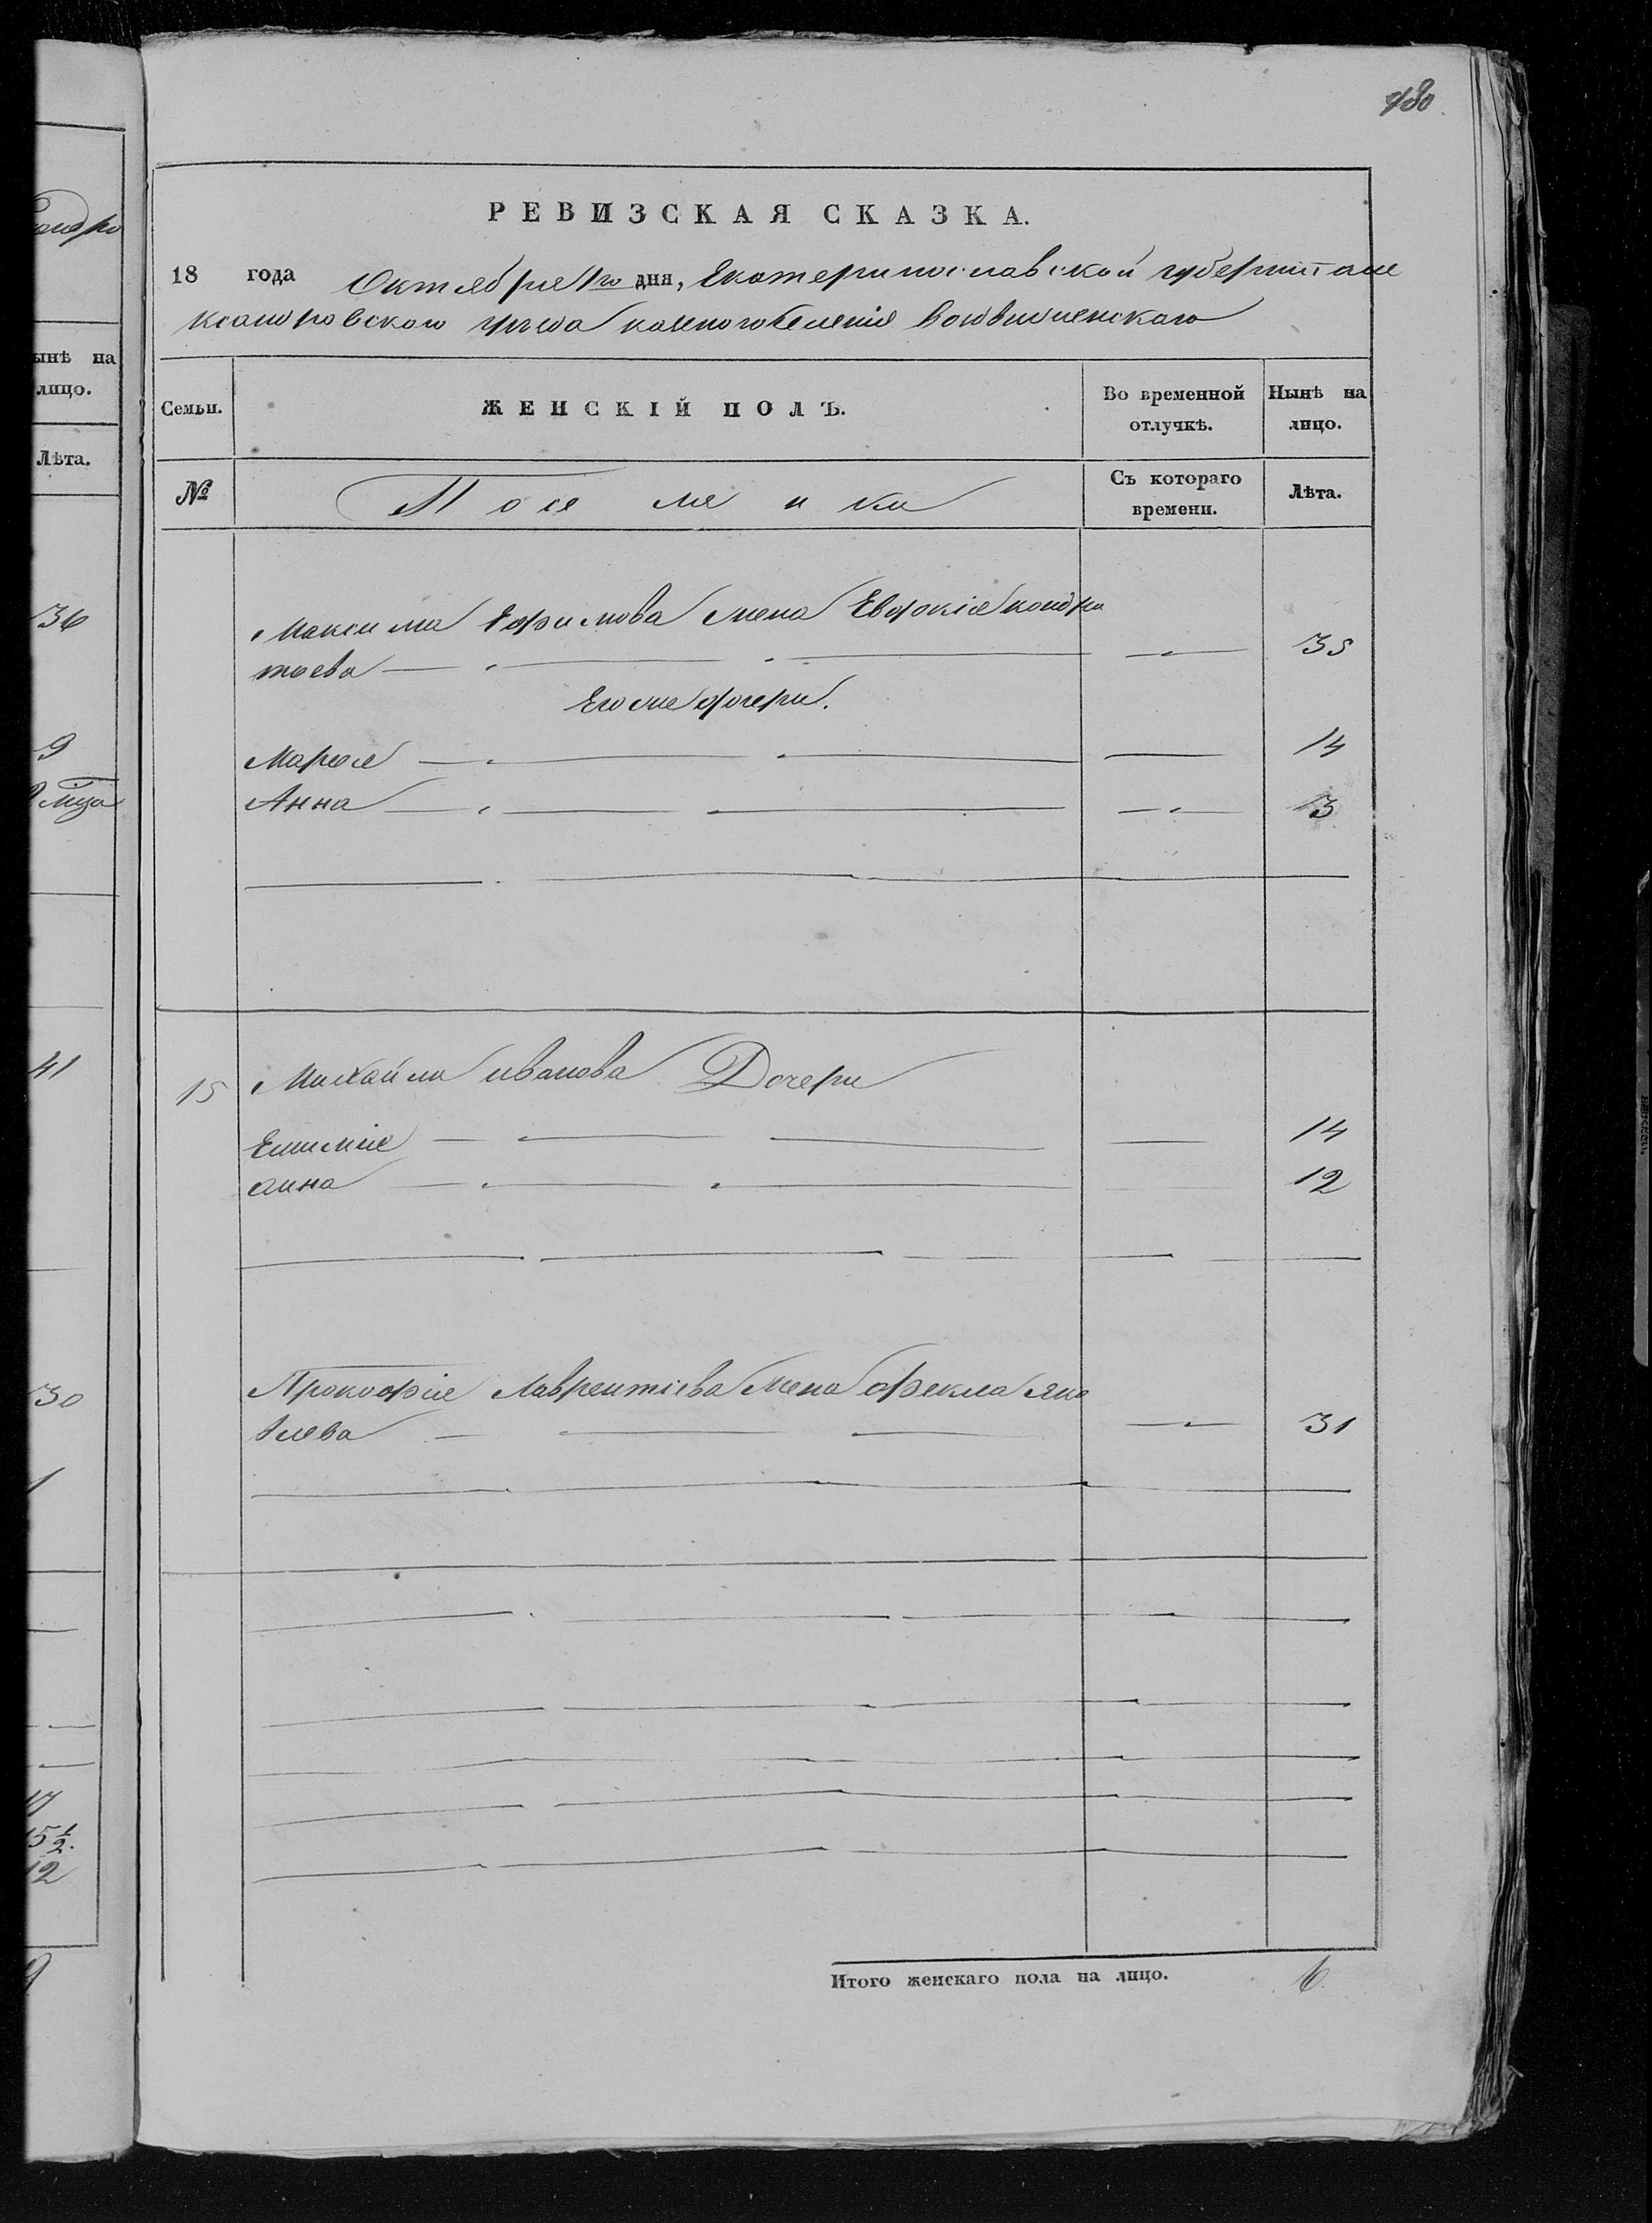 480
РЕВИЗСКАЯ СКАЗКА.
18 года Октября 1го дня, Екатеринославской губернiи але
ксандровского уѣзда казенного селенiя Воздвиженскаго
Семьи.
ЖЕНСКІЙ ПОЛЪ.
Во временной отлучкѣ.
Нынѣ на лицо.
№
Поселянки
Съ котораго времени.
Лѣта.
Максима Ефимова жена Евфокiя кондра
тьева 35
Его же дочери.
Марфа 14
Анна 3
15 Михайла иванова Дочери
14
анна 12
Прокофiя Лаврентiева жена фекла яко
влева 31
Итого женскаго пола на лицо. 6
ынѣ на
лицо.
Лѣта.
36
9
мца
41
30
1
17
15 1/2.
12
9